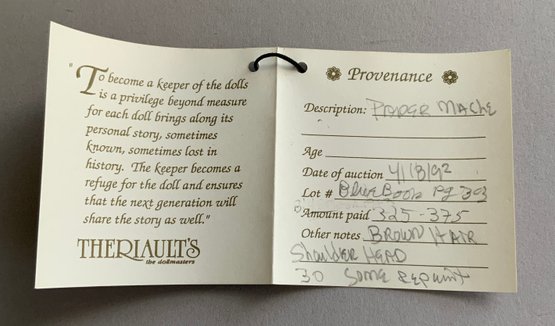 "To become a keeper of the dolls
is a privilege beyond measure
for each doll brings along its
personal story, sometimes
known, sometimes lost in
history. The keeper becomes a
refuge for the doll and ensures
that the next generation will
share the story as well."
THERIAULT'S
the dollmasters
Provenance
Description: PAPER MACHE
Age
Date of auction 4/18/92
Lot # Blue Book pg 393
Amount paid 325-375
Other notes BROWN HAIR
Shoulder HEAD
30 Some Repaint